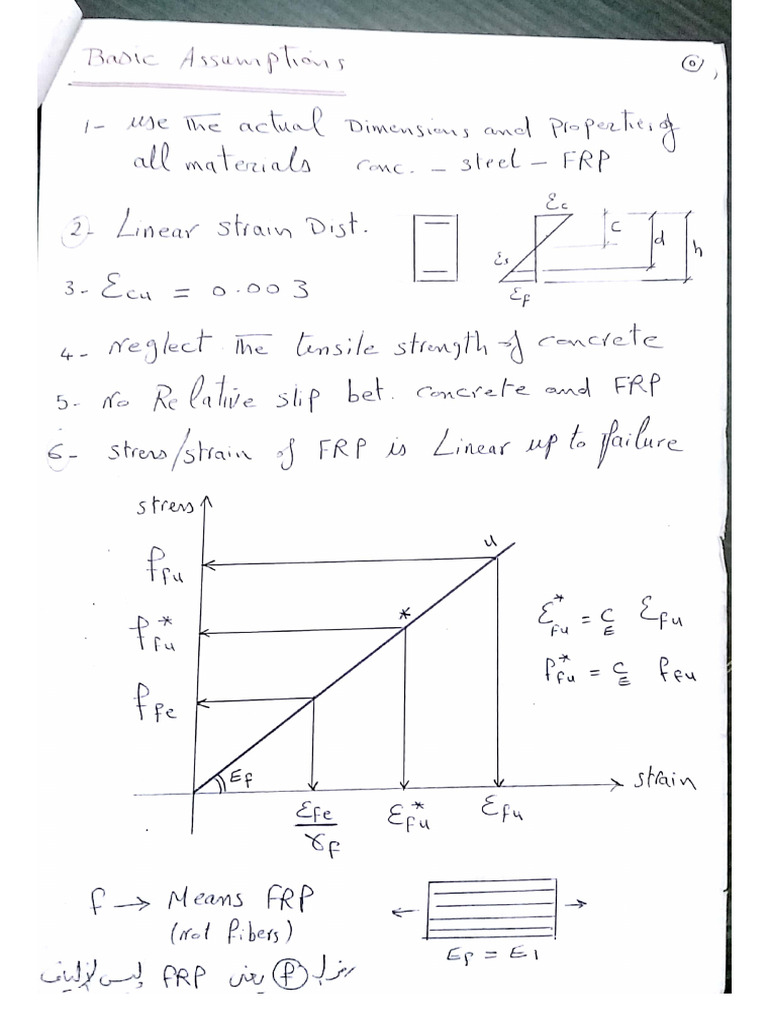 Basic Assumptions
0
1- use The actual Dimensions and Properties of
all materials conc. - steel - FRP
2- Linear Strain Dist.
εc
c
d
h
εs
εf
3- εcu = 0.003
4- Neglect The tensile strength of concrete
5- No Relative slip bet. concrete and FRP
6- stress/strain of FRP is Linear up to failure
stress
u
ffu
*
ffu*
ε*fu = CE εfu
f*fu = CE ffu
ffe
Ef
strain
εfe/γf
εfu*
εfu
f → Means FRP
(not fibers)
Ef = E1
رمز لـ (f) يعنى FRP ليس لألياف